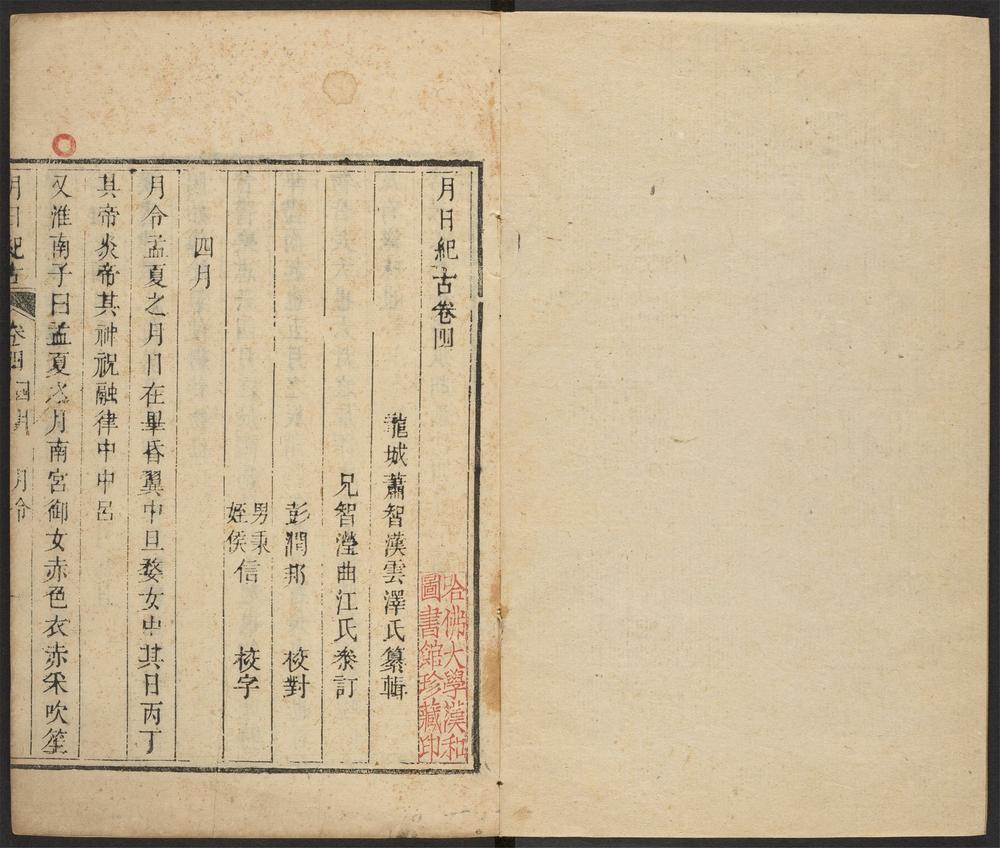 月日紀古卷四
龍城蕭智漢雲澤氏纂輯
兄智瀅曲江氏叅訂
彭潤邦 校對
男秉
姪侯信 校字
四月
月令孟夏之月日在畢昏翼中旦婺女中其日丙丁
其帝炎帝其神祝融律中中呂
又淮南子曰孟夏之月南宮御女赤色衣赤采吹笙
月日紀古 卷四 四月 月令
哈佛大學漢和
圖書館珍藏印